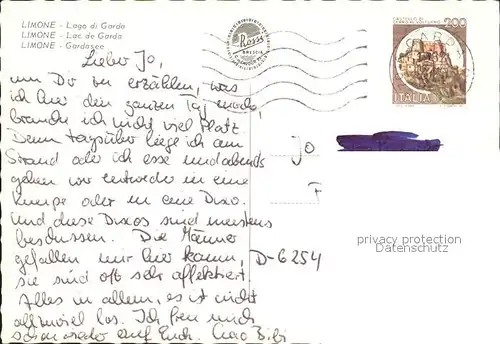 LIMONE - Lago di Garda
LIMONE - Lac de Garda
LIMONE - Gardasee
Rossi
BRESCIA
CASTELLO DI CERRO AL VOLTURNO
200
ITALIA
Lieber Jo,
um Dir zu erzählen, was
ich hier den ganzen Tag mache,
brauche ich nicht viel Platz.
Denn tagsüber liege ich am
Strand oder ich esse und abends
gehen wir entweder in eine
Kneipe oder in eine Disco.
Und diese Discos sind meistens
beschissen. Die Männer
gefallen mir hier kaum,
sie sind oft sehr affektiert.
Alles in allem, es ist nicht
allzuviel los. Ich freu mich
schon wieder auf Euch. Ciao Bibi
Jo
F
D-6254
privacy protection
Datenschutz